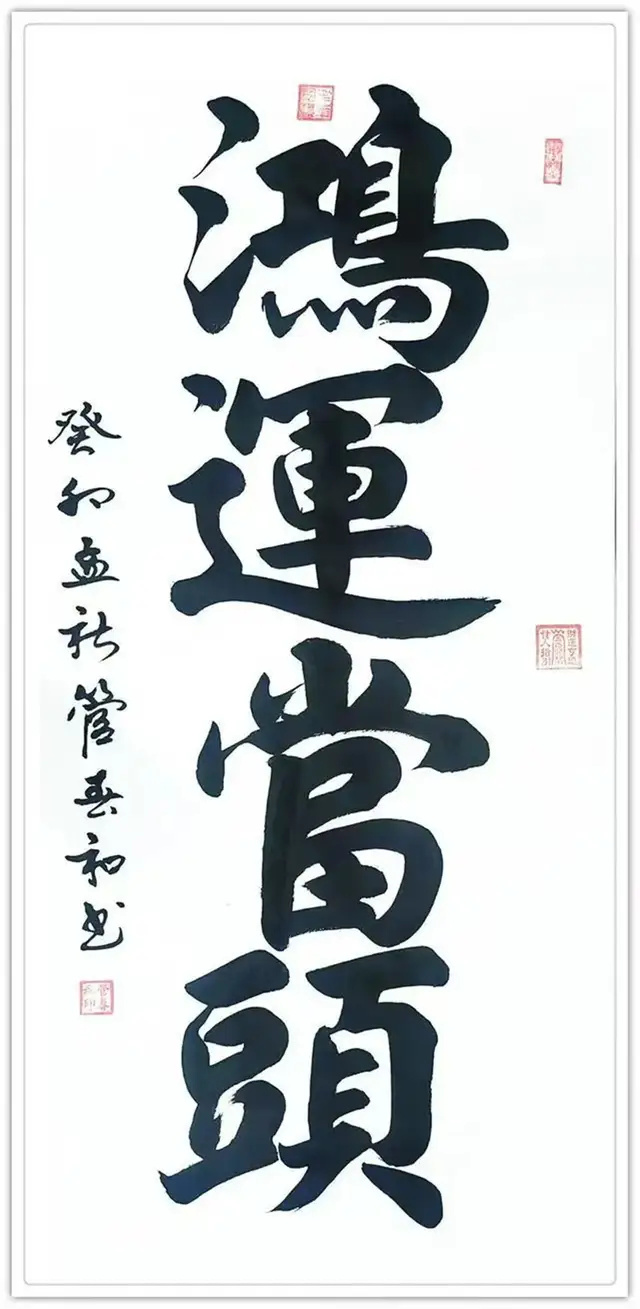 鴻運當頭
癸卯孟秋管春和书